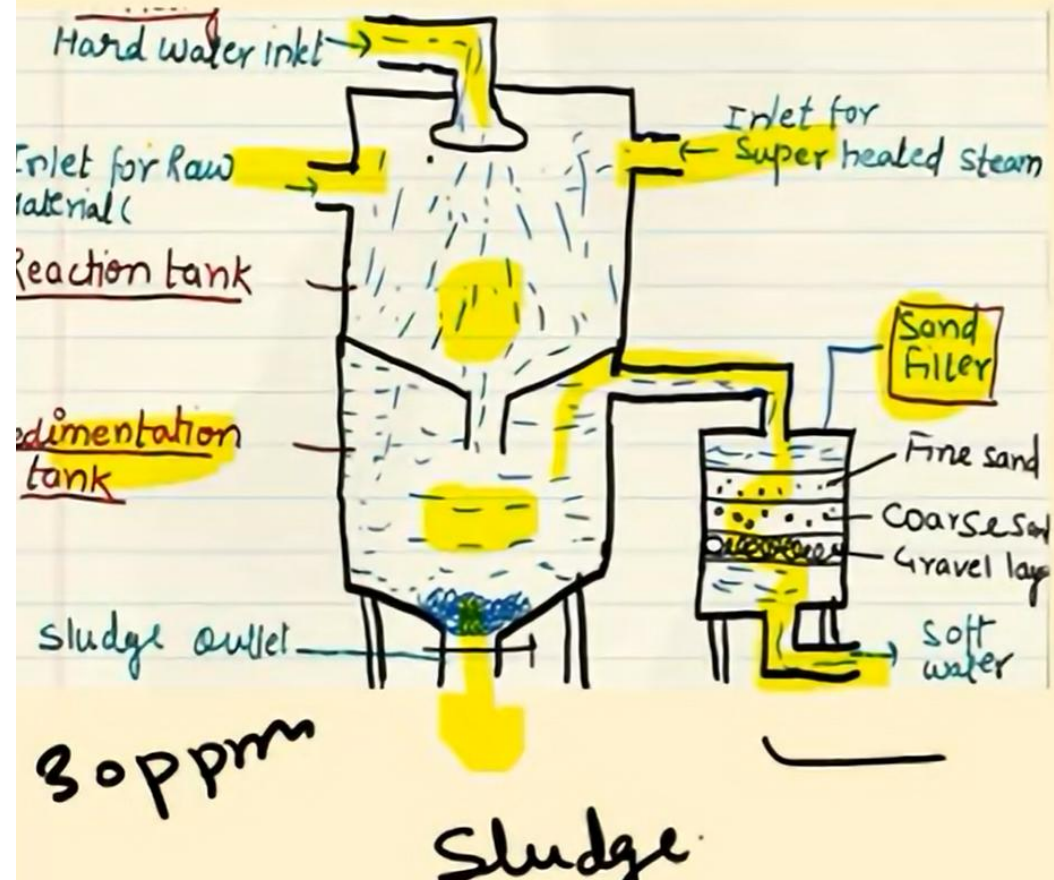 Hard water inlet
Inlet for
Super heated steam
Inlet for Raw
aterial(
Reaction tank
Sand
Filter
edimentation
tank
Fine sand
Coarse san
Gravel lay
Sludge outlet
Soft
water
30ppm
Sludge